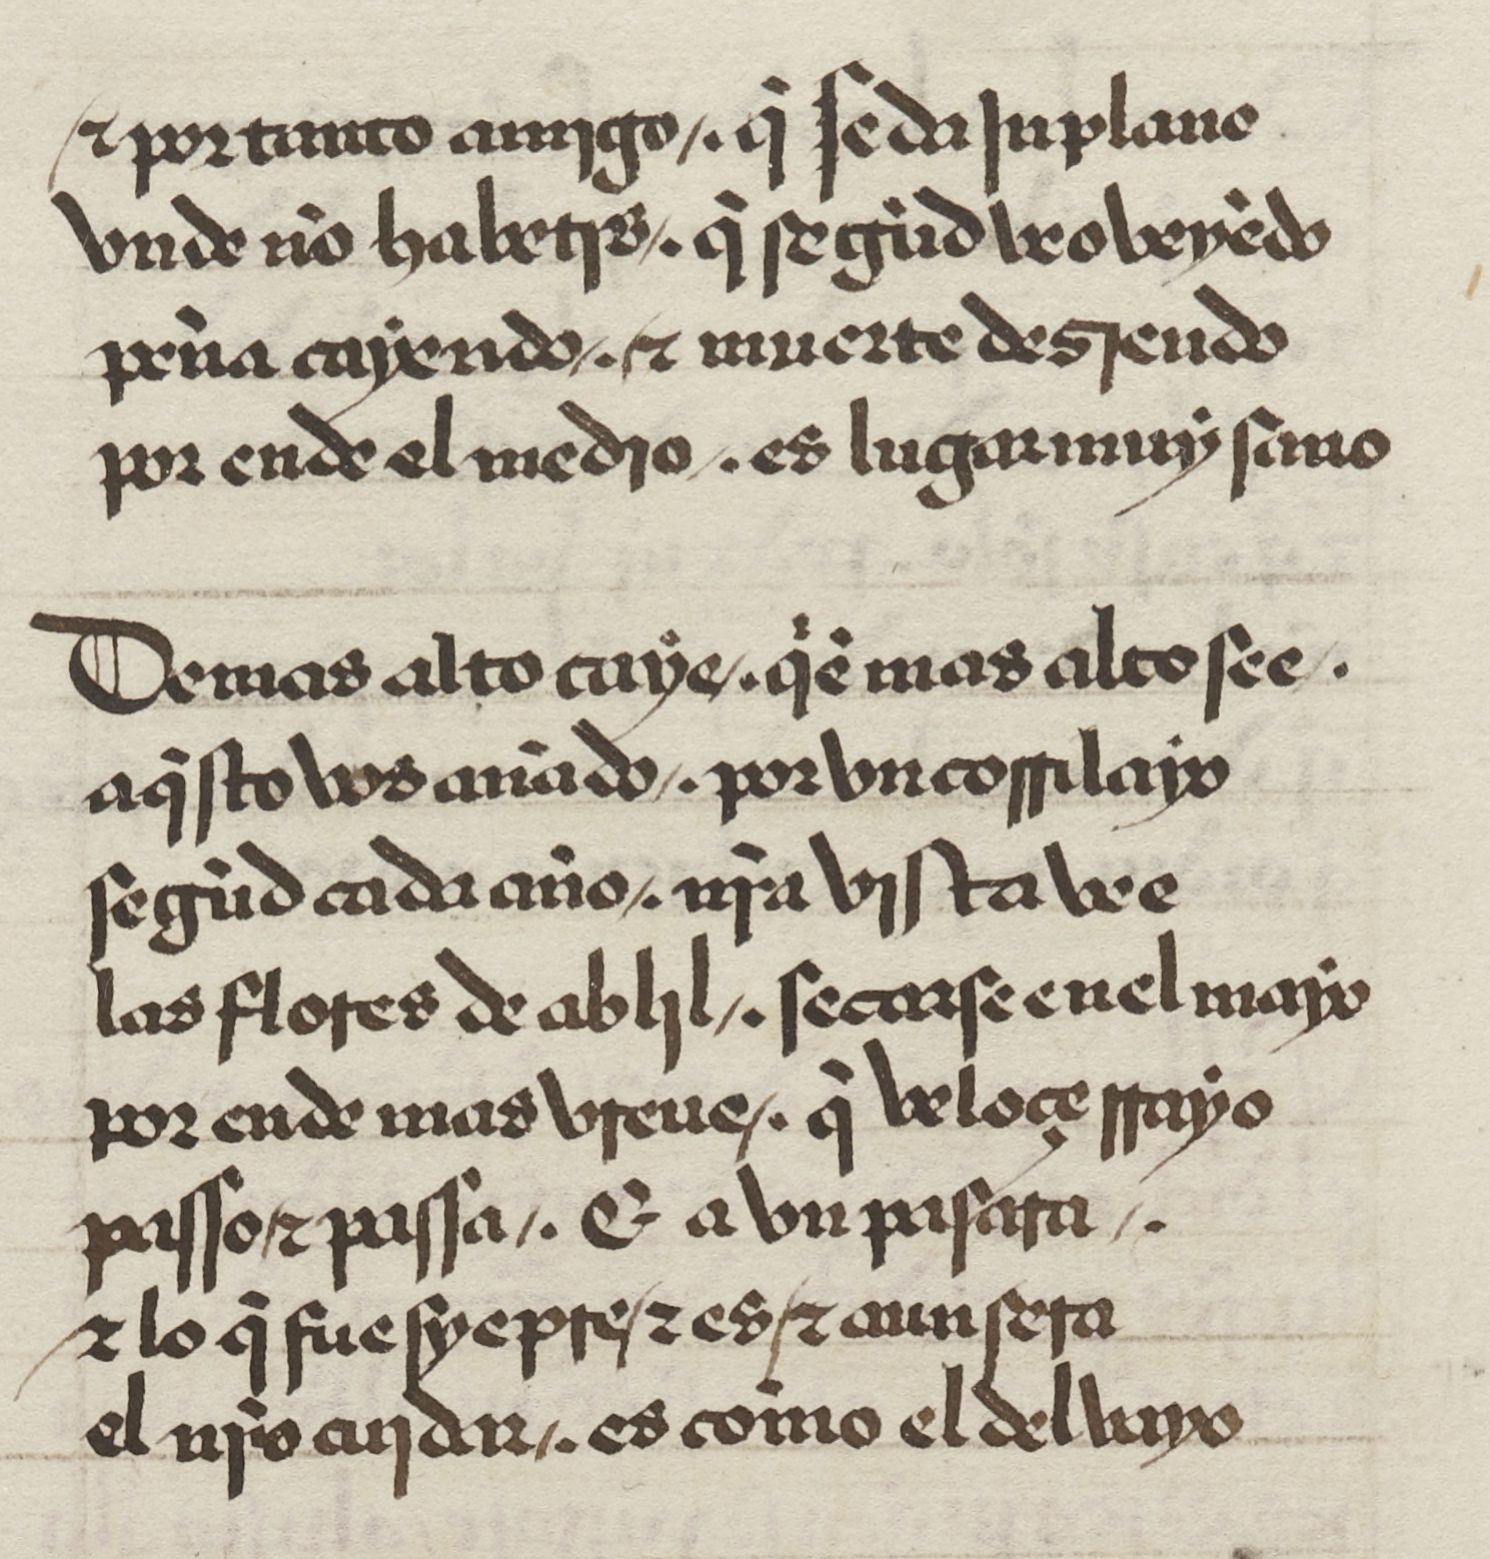 ⁊ por tanto amigo /. q̃ se da Jnplano
vnde nõ habetis /. q̃ segũd veo veyẽdo
pena cayendo /. ⁊ muerte desJendo
por ende el medio /. es lugar muy sano
De mas alto caye /. qⁱẽ mas alto see /.
aq̃sto vos añado /. por vn cossilayo
segũd cada año /. nr̃a vista vee
las flores de abril /. secarse en el mayo
por ende mas breue /. q̃ veloçe rrayo
passo ⁊ passa /. & a vn pasara /.
⁊ lo q̃ fue syepre ⁊ es ⁊ aun sera
el nr̃o andar /. es com̃o el del vayo